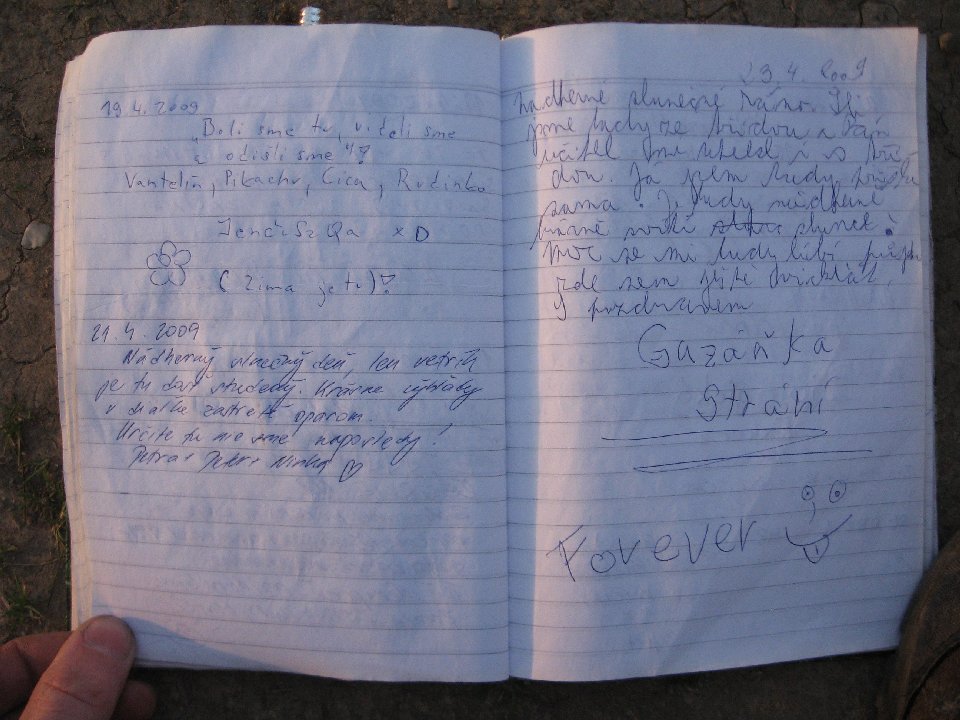 19.4.2009
„Boli sme tu, videli sme
a odišli sme"!
Vantelin, Pikachu, Cica, Rudinko
JenčiszQa xD
(Zima je tu)!
21.4.2009
Nádherný slnečný deň, len vetrík
je tu dosť studený. Krásne výhľady
v diaľke zastreté oparom.
Určite tu nie sme naposledy!
Petra + Peter + Ninka
23.4.2009
Nadherné slunečné ráno.
jsme tudy ze třídou a pan
učitel
dou. Ja jsem tudy
sama. Je tudy nádherné
slunce!
moc se mi tudy líbí
zde sem ještě
S pozdravem
Gazáňka
Strání
Forever